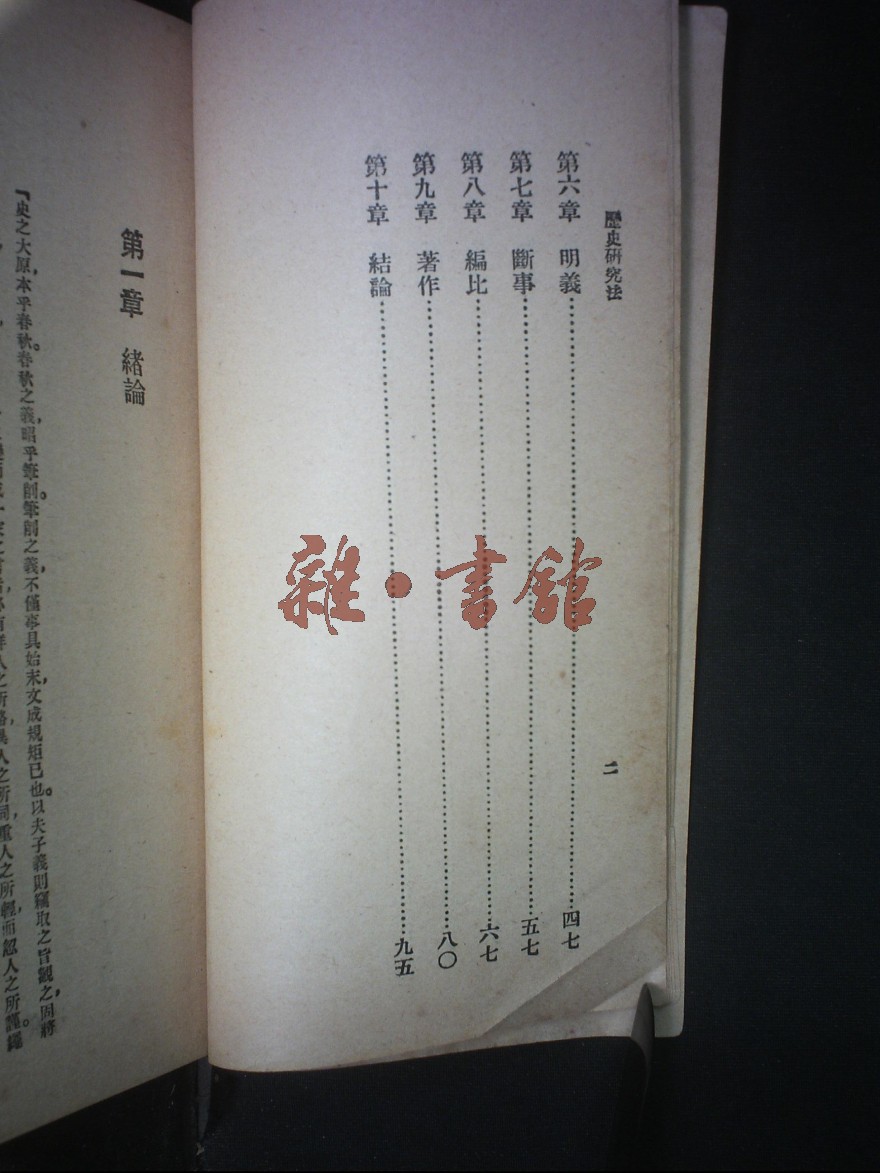 歷史研究法
二
第六章 明義……四七
第七章 斷事……五七
第八章 編比……六七
第九章 著作……八〇
第十章 結論……九五
雜·書館
第一章 緒論
「史之大原本乎春秋。春秋之義,昭乎筆削。筆削之義,不僅事具始末,文成規矩已也。以夫子義則竊取之旨觀之,固將
人之所略,異人之所同,重人之所輕,而忽人之所謹。繩